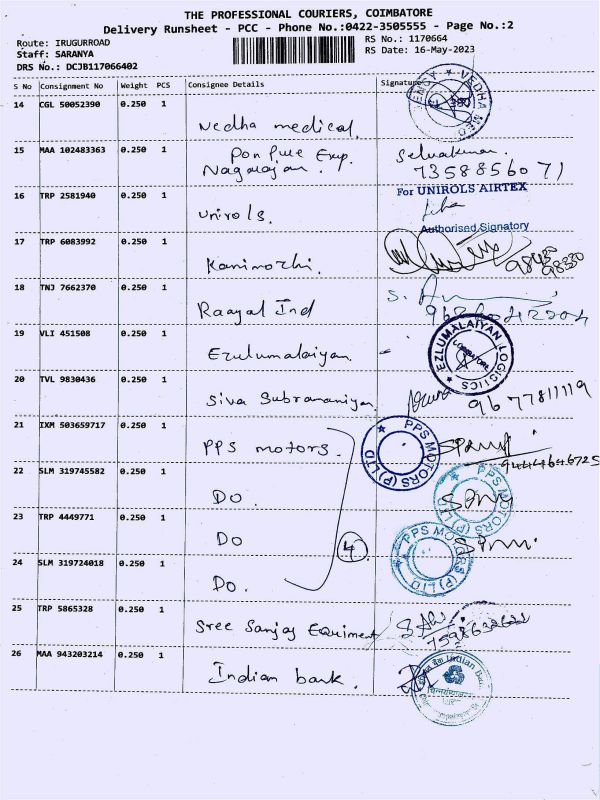 THE PROFESSIONAL COURIERS, COIMBATORE
Delivery Runsheet - PCC - Phone No.:0422-3505555 - Page No.:2
Route: IRUGURROAD
RS No.: 1170664
Staff: SARANYA
RS Date: 16-May-2023
DRS No.: DCJB117066402
S No Consignment No Weight PCS Consignee Details Signature
14 CGL 50052390 0.250 1
Vedha medical.
15 MAA 102483363 0.250 1 Pon Pure Exp. Selvakumar.
Nagarajan. 7358856071
16 TRP 2581940 0.250 1 For UNIROLS AIRTEX
Unirols.
Authorised Signatory
17 TRP 6083992 0.250 1
Kanimozhi.
18 TNJ 7662370 0.250 1
Raayal Ind
19 VLI 451508 0.250 1 EZLUMALAIYAN LOGISTICS
Ezulumalaiyan
20 TVL 9830436 0.250 1
Siva Subramaniyan 9677811119
21 IXM 503659717 0.250 1 PPS MOTORS (P) LTD
PPS motors. 9444646725
22 SLM 319745582 0.250 1 PPS MOTORS (P) LTD
Do.
23 TRP 4449771 0.250 1 PPS MOTORS (P) LTD
Do
4
24 SLM 319724018 0.250 1
Do.
25 TRP 5865328 0.250 1
Sree Sanjay Equiment
26 MAA 943203214 0.250 1 Indian Bank
Indian bank.